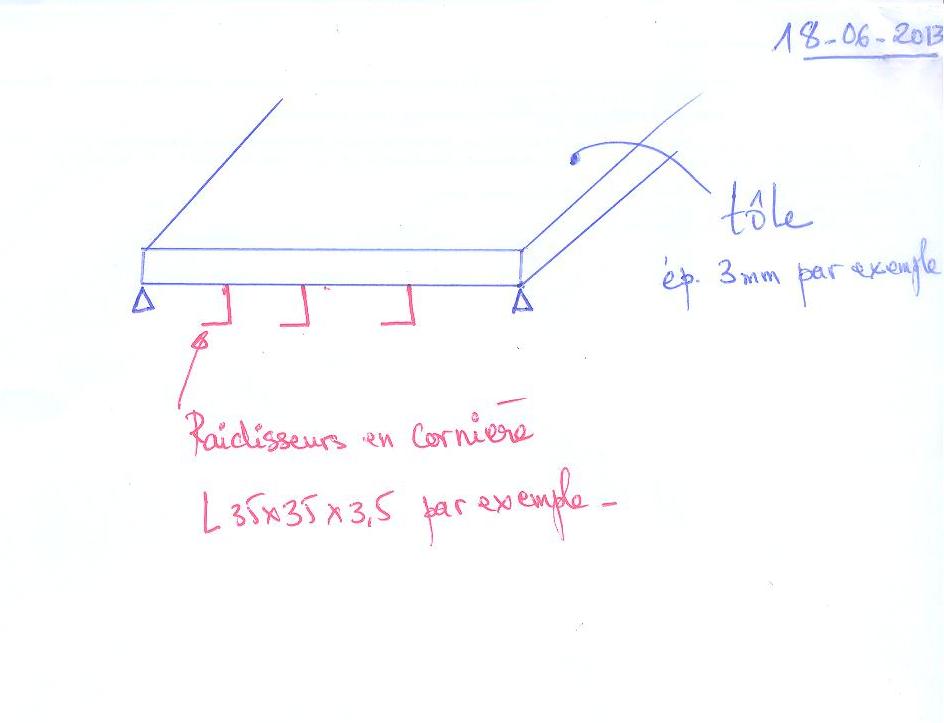 18-06-2013
tôle
ép. 3mm par exemple
Raidisseurs en cornière
L 35x35x3,5 par exemple -